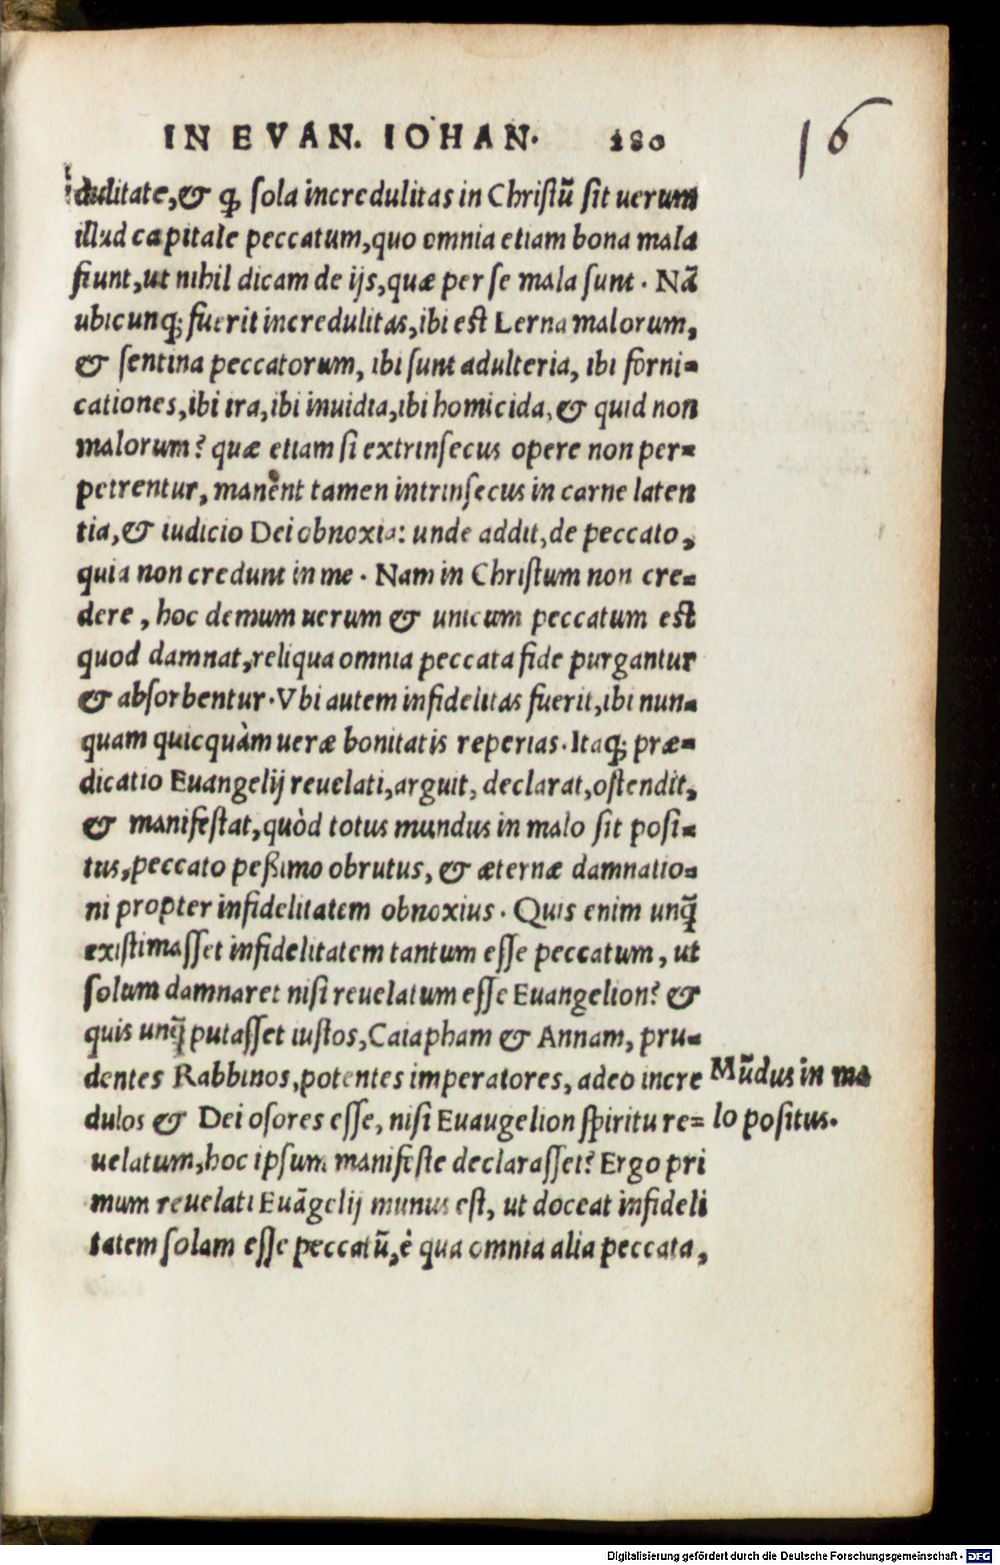 IN EVAN. IOHAN. 280
16
dulitate, & ꝙ sola incredulitas in Christũ sit uerum
illud capitale peccatum, quo omnia etiam bona mala
fiunt, ut nihil dicam de ijs, quæ per se mala sunt. Nã
ubicunq; fuerit incredulitas, ibi est Lerna malorum,
& sentina peccatorum, ibi sunt adulteria, ibi forni-
cationes, ibi ira, ibi inuidia, ibi homicida, & quid non
malorum? quæ etiam si extrinsecus opere non per-
petrentur, manent tamen intrinsecus in carne laten
tia, & iudicio Dei obnoxia: unde addit, de peccato,
quia non credunt in me. Nam in Christum non cre-
dere, hoc demum uerum & unicum peccatum est
quod damnat, reliqua omnia peccata fide purgantur
& absorbentur. Vbi autem infidelitas fuerit, ibi nun-
quam quicquàm ueræ bonitatis reperias. Itaq; præ-
dicatio Euangelij reuelati, arguit, declarat, ostendit,
& manifestat, quòd totus mundus in malo sit posi-
tus, peccato peßimo obrutus, & æternæ damnatio-
ni propter infidelitatem obnoxius. Quis enim unq̃
existimasset infidelitatem tantum esse peccatum, ut
solum damnaret nisi reuelatum esse Euangelion? &
quis unq̃ putasset iustos, Caiapham & Annam, pru-
dentes Rabbinos, potentes imperatores, adeo incre
dulos & Dei osores esse, nisi Euaugelion spiritu re-
uelatum, hoc ipsum manifeste declarasset? Ergo pri
mum reuelati Euãgelij munus est, ut doceat infideli
tatem solam esse peccatũ, è qua omnia alia peccata,
Mũdus in ma
lo positus.
Digitalisierung gefördert durch die Deutsche Forschungsgemeinschaft - DFG